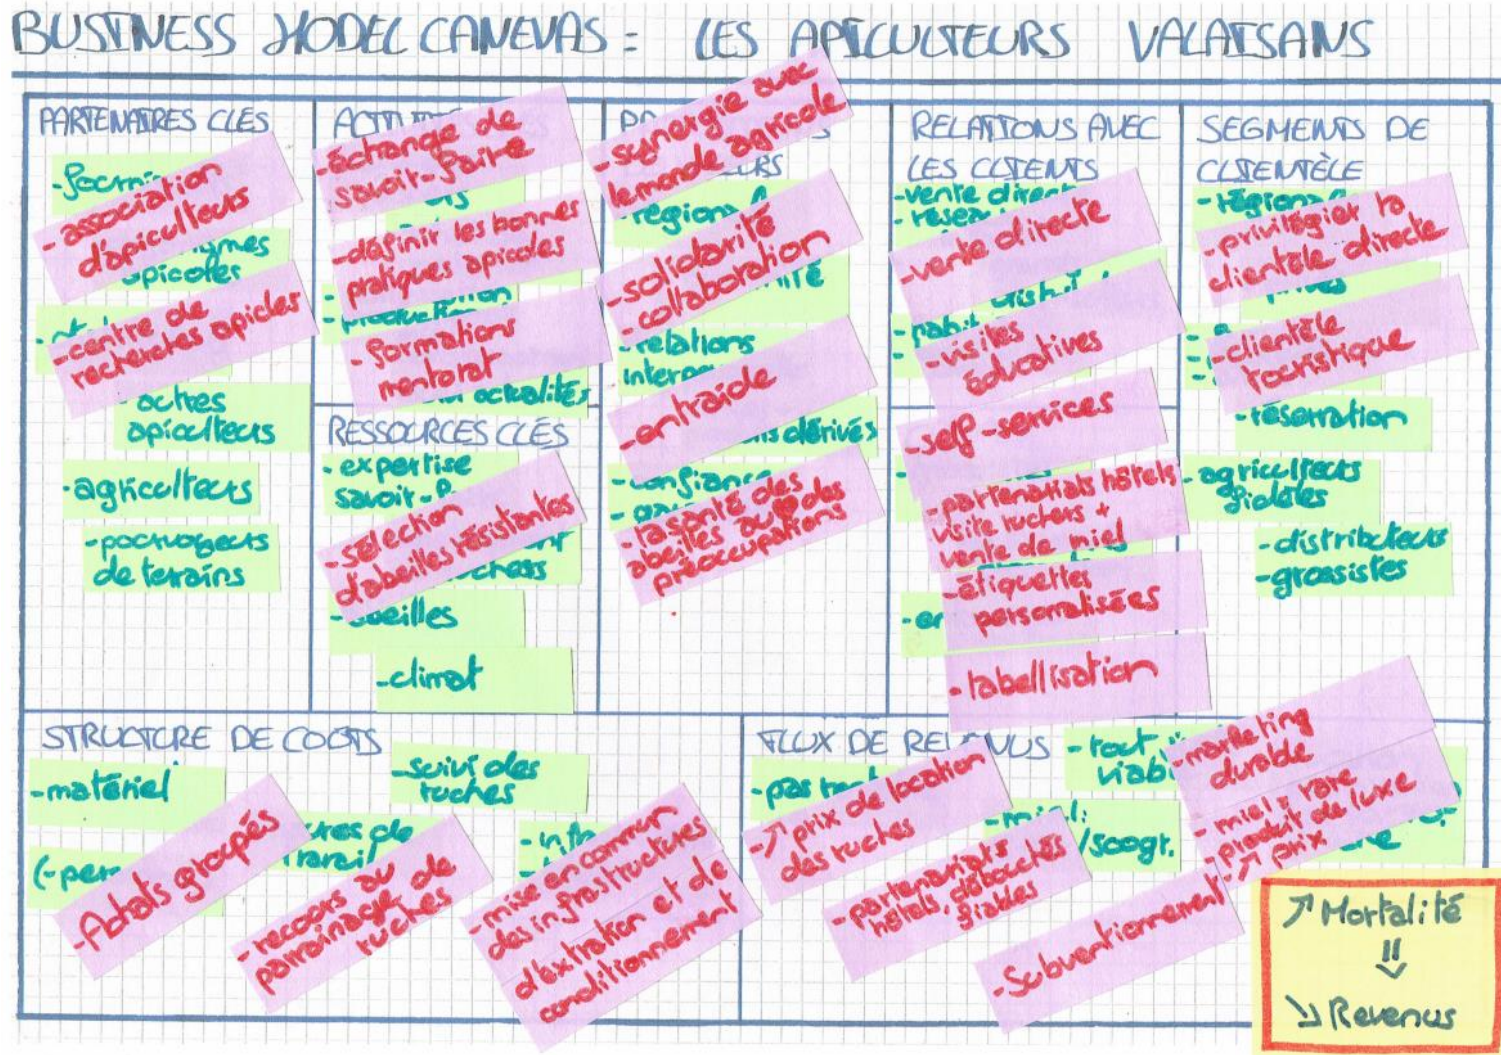 BUSINESS MODEL CANEVAS : LES APICULTEURS VALAISANS
PARTENAIRES CLÉS
- association
d'apiculteurs
apicoles
- centre de
recherches apicles
autres
apiculteurs
- agriculteurs
- pourvoyeurs
de terrains
- échange de
savoir-faire
- définir les bonnes
pratiques apicoles
- formations
mentorat
actualités
RESSOURCES CLÉS
- expertise
- sélection
d'abeilles résistantes
- climat
- synergie avec
le monde agricole
- solidarité
- collaboration
- relations
- entraide
dérivés
- la santé des
abeilles au <3 des
préoccupations
RELATIONS AVEC
LES CLIENTS
- vente directe
- visites
éducatives
- self-services
- partenariats hôtels
visite ruchers +
vente de miel
- étiquettes
personnalisées
- labellisation
SEGMENTS DE
CLIENTÈLE
- privilégier la
clientèle directe
- clientèle
touristique
- réservation
- agriculteurs
fidèles
- distributeurs
- grossistes
STRUCTURE DE COÛTS
- matériel
- suivi des
ruches
- Achats groupés
- recours au
parrainage de
ruches
- mise en commun
des infrastructures
d'extration et de
conditionnement
FLUX DE REVENUS
- ↗ prix de location
des ruches
- miel:
/500gr.
- partenariats
hôtels, débouchés
fiables
- Subventionnement
- marketing
durable
- miel = rare
produit de luxe
- ↗ prix
↗ Mortalité
⇓
↘ Revenus